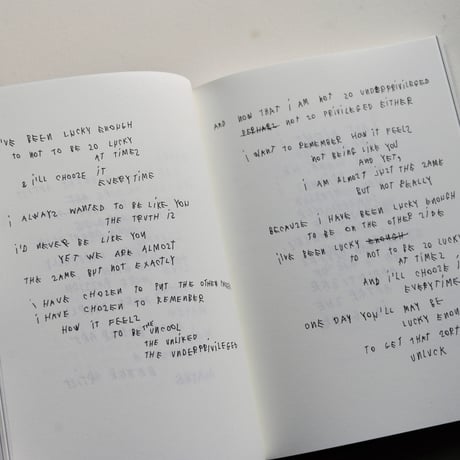 I'VE BEEN LUCKY ENOUGH
TO NOT TO BE SO LUCKY
AT TIMES
& I'LL CHOOSE IT
EVERYTIME
I ALWAYS WANTED TO BE LIKE YOU
THE TRUTH IS
I'D NEVER BE LIKE YOU
YET WE ARE ALMOST
THE SAME BUT NOT EXACTLY
I HAVE CHOSEN TO PUT THE OTHER
I HAVE CHOSEN TO REMEMBER
HOW IT FEELS
TO BE THE UNCOOL
THE UNLIKED
THE UNDERPRIVILEGED
AND NOW THAT I AM NOT SO UNDERPRIVILEGED
PERHAPS NOT SO PRIVILEGED EITHER
I WANT TO REMEMBER HOW IT FEELS
NOT BEING LIKE YOU
AND YET,
I AM ALMOST JUST THE SAME
BUT NOT REALLY
BECAUSE I HAVE BEEN LUCKY ENOUGH
TO BE ON THE OTHER SIDE
I'VE BEEN LUCKY ENOUGH
TO NOT TO BE SO LUCKY
AT TIMES
AND I'LL CHOOSE I
EVERYTIME
ONE DAY YOU'LL MAY BE
LUCKY ENOU
TO GET THAT SORT
UNLUCK